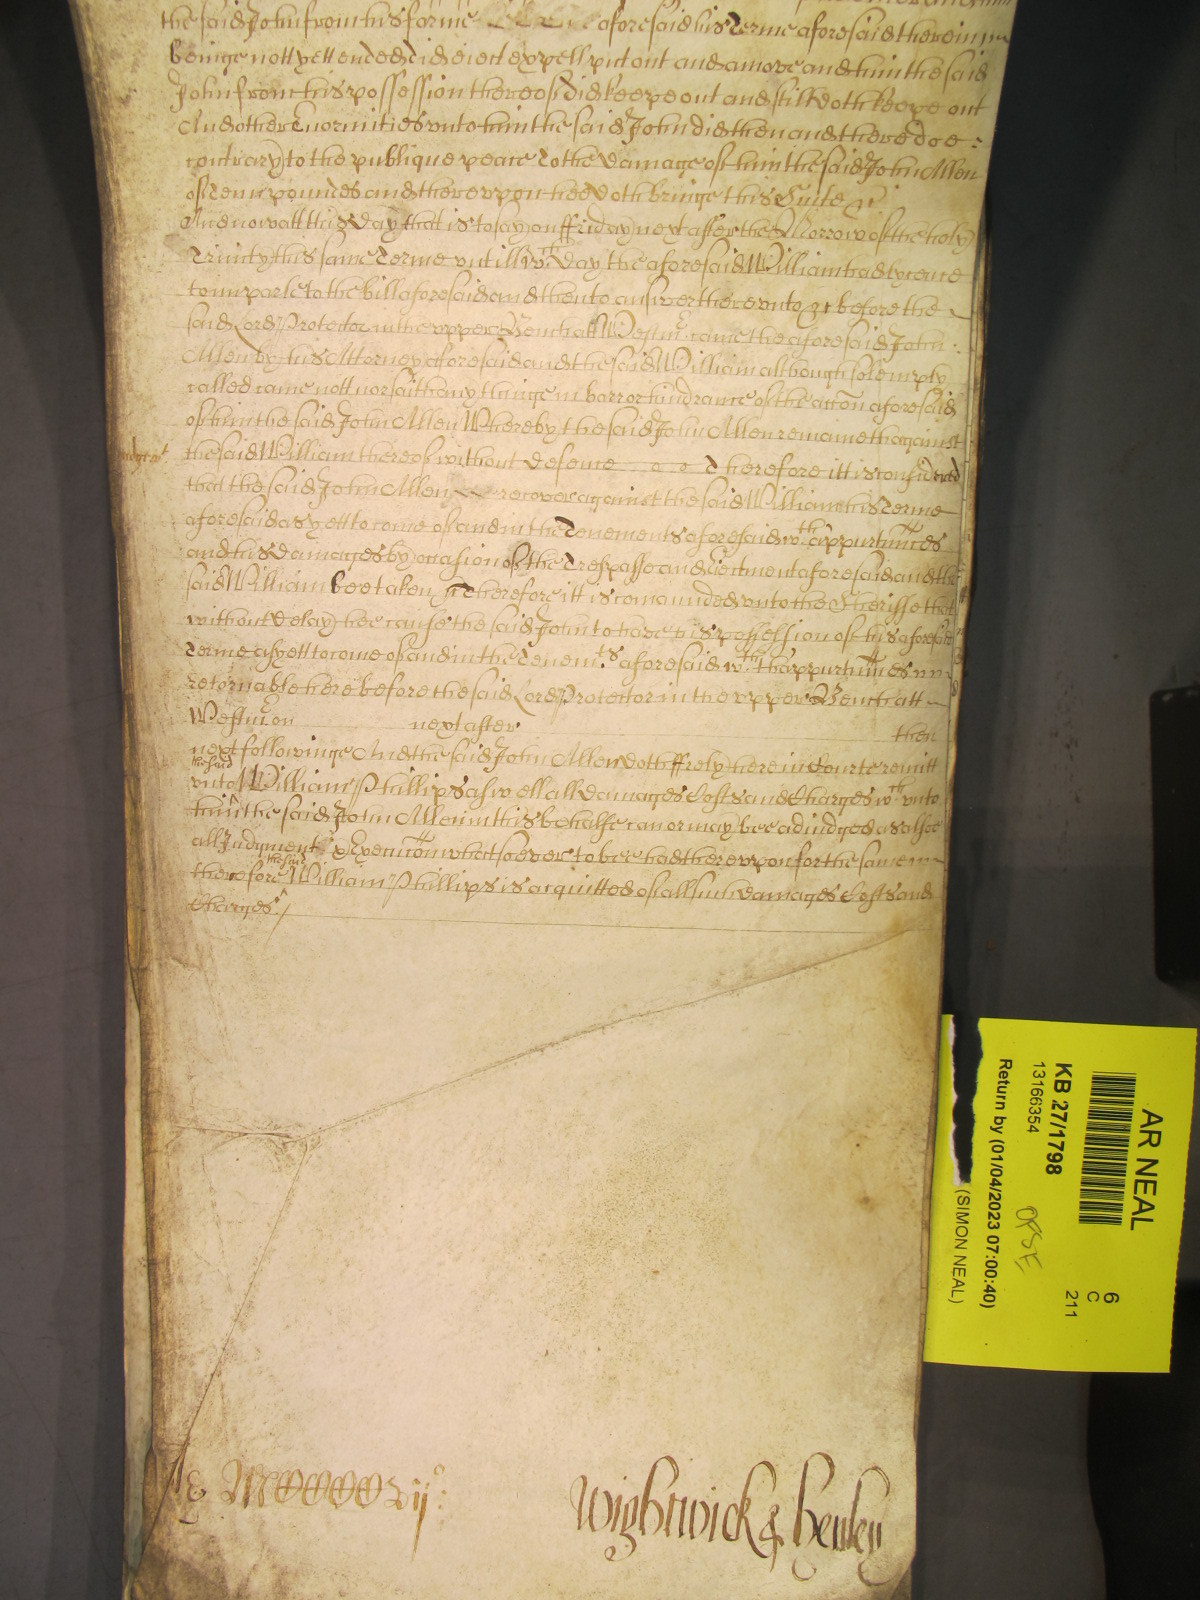 the said John from his ferme aforesaid his Terme aforesaid therein
beinge nott yett ended did eiect expell put out and amove and him the said
John from his possession thereof did keepe out and still doth keepe out
And other Enormities vnto him the said John did then and there doe
contrary to the publique peace To the damage of him the said John Allen
of Tenn pounds and therevpon hee doth bringe this Suite &c
And now att this day that is to say on ffriday next after the Morrow of the holy
Trinity this same Terme vntill wch day the aforesaid William had lycence
to imparle to the bill aforesaid and then to answer therevnto &c before the
said Lord Protector in the vpper Bench att Westmr came the aforesaid John
Allen by his Attorney aforesaid and the said William although solemply
called came nott nor saith any thinge in barr or hindrance of the accon aforesaid
of him the said John Allen Whereby the said John Allen remaineth against
the said William thereof without defence Therefore itt is considered
that the said John Allen recover against the said William his Terme
aforesaid as yett to come of and in the Tenements aforesaid wth thappurtnnces
and his damages by occasion of the Trespasse and Eiectment aforesaid and the
said William bee taken &c Therefore itt is comaunded vnto the Sheriffe that
without delay hee cause the said John to have his possession of his aforesaid
Terme as yett to come of and in the Tenemts aforesaid wth thappurtnnces
retornable here before the said Lord Protector in the vpper Bench att
Westmr on next after then
next followinge And the said John Allen doth ffrely here in Courte remitt
vnto the said William Phillips aswell all damages Costs and Charges wch vnto
him the said John Allen in this behalfe can or may bee adiudged as alsoe
all Judgment & Execucon whatsoever to bee had therevpon for the same
therefore the said William Phillips is acquitted of all such damages Costs and
Charges &c
Wightwick & Henley
AR NEAL
KB 27/1798
13166354
Return by (01/04/2023 07:00:40)
(SIMON NEAL)
6
C
211